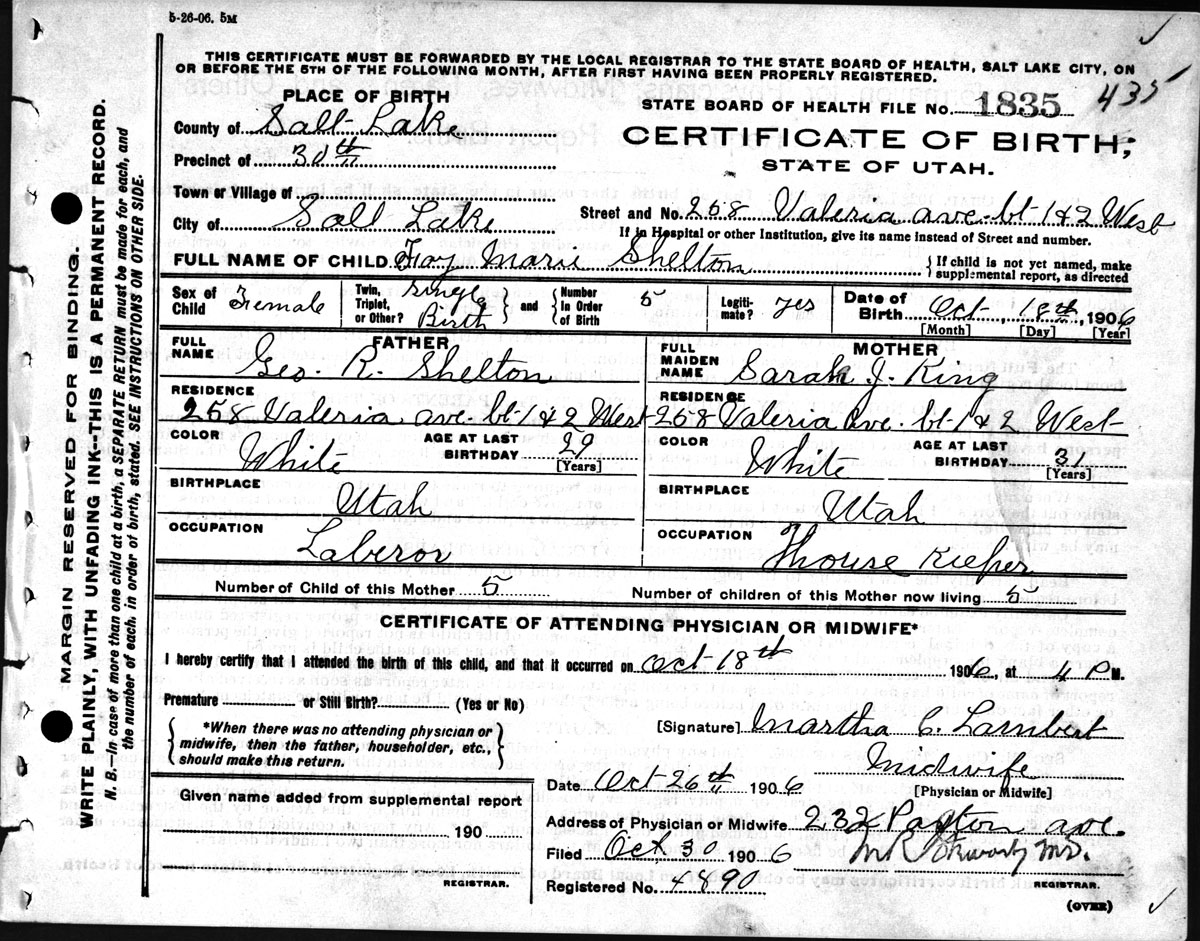 5-26-06. 5M
THIS CERTIFICATE MUST BE FORWARDED BY THE LOCAL REGISTRAR TO THE STATE BOARD OF HEALTH, SALT LAKE CITY, ON
OR BEFORE THE 5TH OF THE FOLLOWING MONTH, AFTER FIRST HAVING BEEN PROPERLY REGISTERED.
MARGIN RESERVED FOR BINDING.
WRITE PLAINLY, WITH UNFADING INK--THIS IS A PERMANENT RECORD.
N. B.—In case of more than one child at a birth, a SEPARATE RETURN must be made for each, and
the number of each, in order of birth, stated. SEE INSTRUCTIONS ON OTHER SIDE.
PLACE OF BIRTH
County of Salt Lake
Precinct of 30th
Town or Village of
City of Salt Lake
STATE BOARD OF HEALTH FILE No. 1835 435
CERTIFICATE OF BIRTH;
STATE OF UTAH.
Street and No. 258 Valeria ave. bt-1 & 2 West
If in Hospital or other Institution, give its name instead of Street and number.
FULL NAME OF CHILD. Fay Marie Shelton { If child is not yet named, make
supplemental report, as directed
Sex of Child Female Twin, Triplet, or Other? Single Birth } and { Number in Order of Birth 5 Legiti- mate? Yes Date of Birth Oct-, 18th, 1906
[Month] [Day] [Year]
FATHER
FULL NAME Geo. R. Shelton
RESIDENCE
258 Valeria ave. bt-1 & 2 West
COLOR White AGE AT LAST BIRTHDAY 29 [Years]
BIRTHPLACE Utah
OCCUPATION Laberor
MOTHER
FULL MAIDEN NAME Sarah J. King
RESIDENCE
258 Valeria Ave. bt-1 & 2 West-
COLOR White AGE AT LAST BIRTHDAY 31 [Years]
BIRTHPLACE Utah
OCCUPATION House Kieper
Number of Child of this Mother 5 Number of children of this Mother now living 5
CERTIFICATE OF ATTENDING PHYSICIAN OR MIDWIFE*
I hereby certify that I attended the birth of this child, and that it occurred on Oct-18th 1906, at 4 P M.
Premature or Still Birth? (Yes or No)
{ *When there was no attending physician or
midwife, then the father, householder, etc.,
should make this return. }
[Signature] Martha C. Lambert
Midwife
Date Oct-26th 1906 [Physician or Midwife]
Given name added from supplemental report
190
REGISTRAR.
Address of Physician or Midwife 232 Paxton ave.
Filed Oct, 30 1906 M.D.
Registered No. 4890 REGISTRAR.
(OVER)